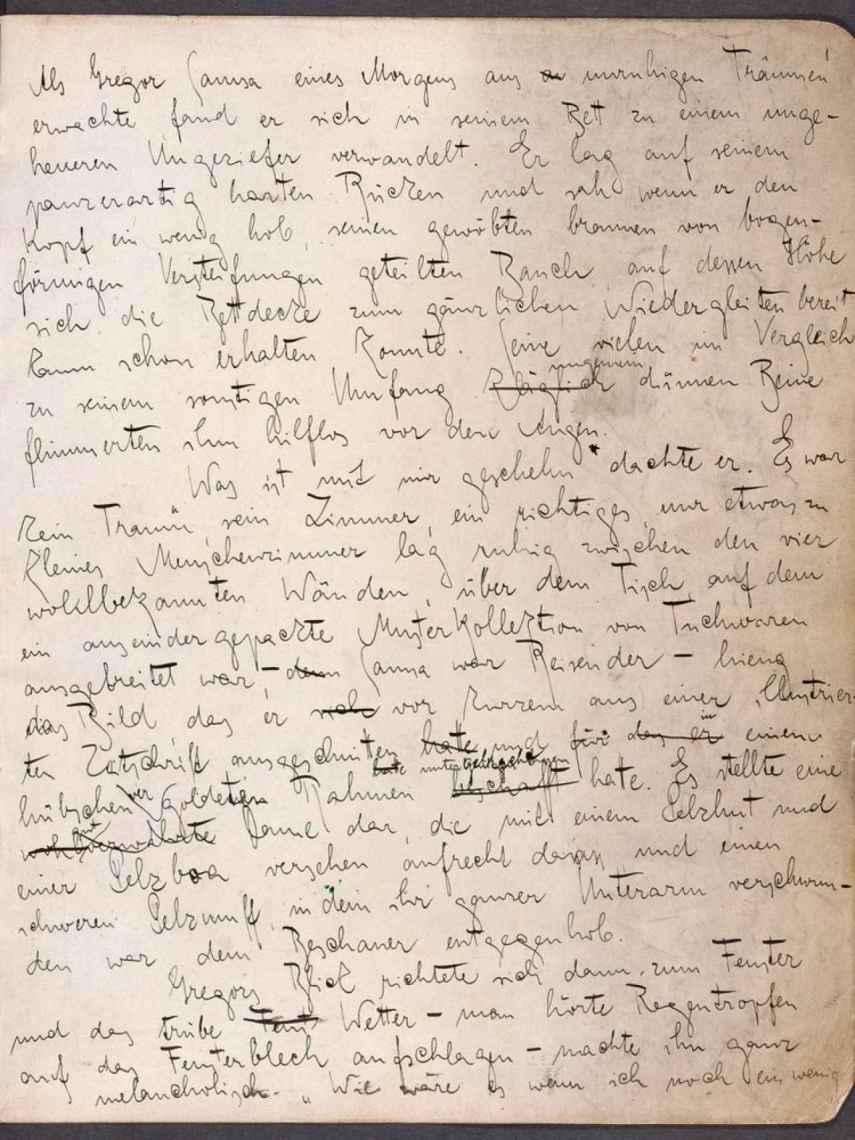 Als Gregor Samsa eines Morgens aus unruhigen Träumen
erwachte fand er sich in seinem Bett zu einem unge-
heueren Ungeziefer verwandelt. Er lag auf seinem
panzerartig harten Rücken und sah wenn er den
Kopf ein wenig hob, seinen gewölbten braunen von bogen-
förmigen Versteifungen geteilten Bauch auf dessen Höhe
sich die Bettdecke zum gänzlichen Niedergleiten bereit
kaum schon erhalten konnte. Seine vielen im Vergleich
ungemein
zu seinem sonstigen Umfang kläglich dünnen Beine
flimmerten ihm hilflos vor den Augen.
Was ist mit mir geschehn dachte er. Es war
kein Traum, sein Zimmer, ein richtiges nur etwas zu
kleines Menschenzimmer lag ruhig zwischen den vier
wohlbekannten Wänden, über dem Tisch, auf dem
ein auseindergepackte Musterkollektion von Tuchwaren
ausgebreitet war – denn Samsa war Reisender – hieng
das Bild, das er sich vor kurzem aus einer illustrier-
ten Zeitschrift ausgeschnitten hatte und für das er in einem
hatte untergebracht
hübschen vergoldeten Rahmen hatte. Es stellte eine
Dame dar, die mit einem Pelzhut und
einer Pelzboa versehen aufrecht dasass und einen
schweren Pelzmuff, in dem ihr ganzer Unterarm verschwun-
den war dem Beschauer entgegenhob.
Gregors Blick richtete sich dann zum Fenster
und das trübe Wetter – man hörte Regentropfen
auf das Fensterblech aufschlagen – machte ihn ganz
melancholisch. „Wie wäre es wenn ich noch ein wenig